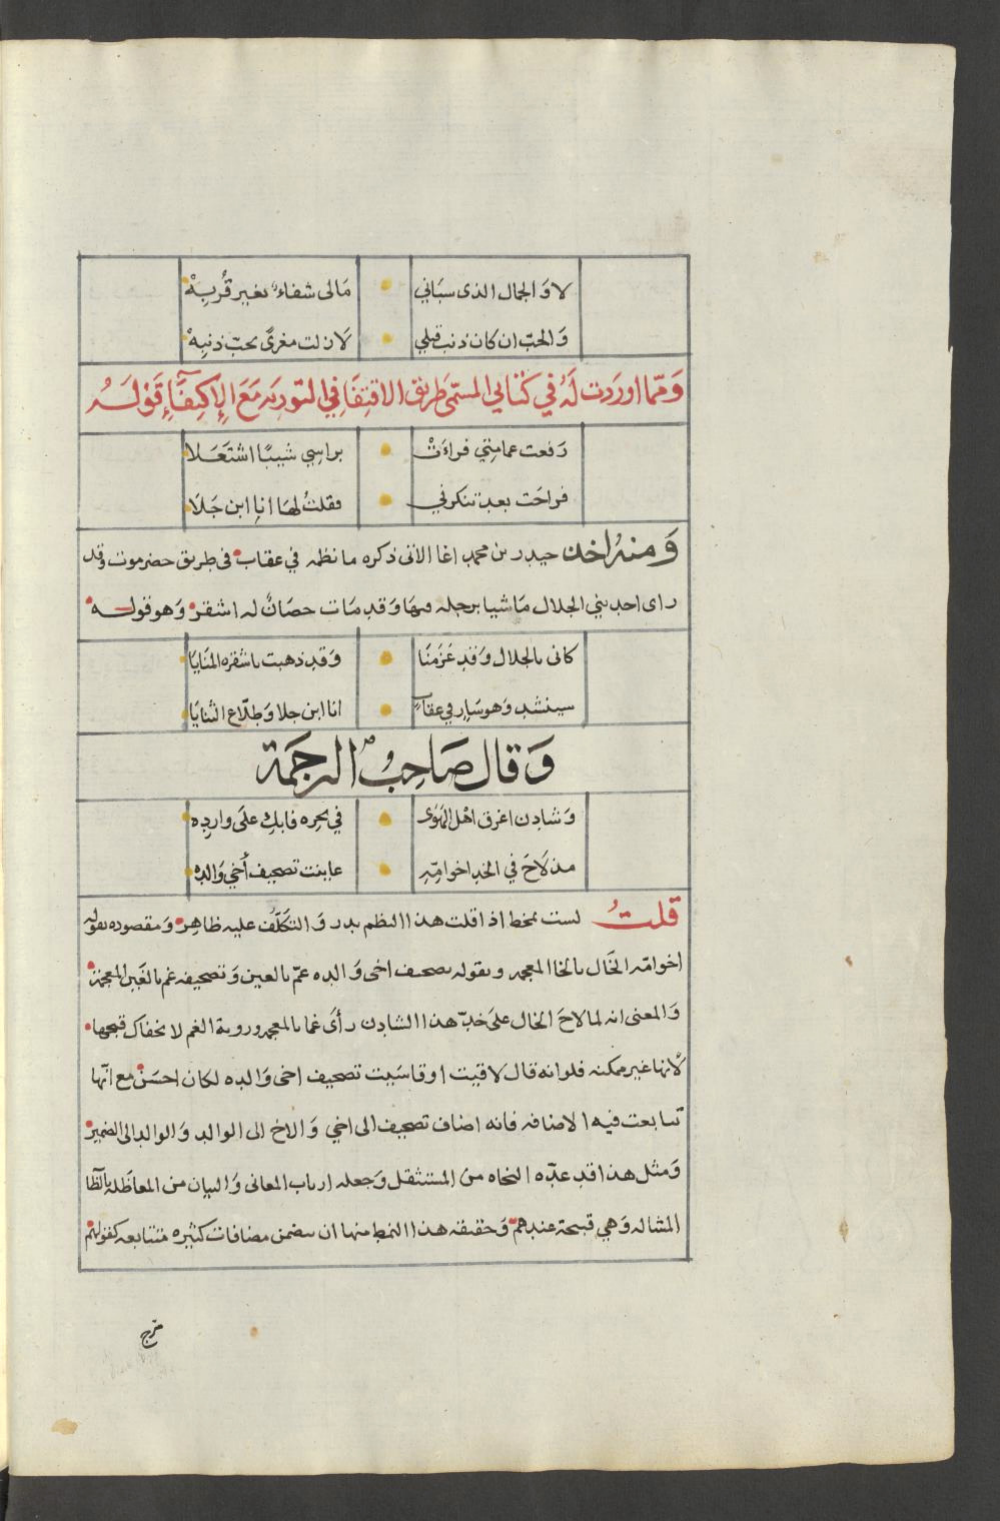 لا وَالجمال الذى سبَاني مَالى شفاءٌ بغير قُربِهْ
وَالحبّ ان كان ذنب قبلي لازلت مغرىً بحبّ ذنبِهْ
وَممّا اوردت لَهُ في كتابي المسمّى طَريق الاقتِفَا في التوريَه مَعَ الإكتِفَآءِ قَوْلَهُ
رَفعت عمامتي فراءَتْ براسِي شيبًا اشتَعَلا
فراحَت بعد تنكرني فقلتُ لهَا انا ابن جَلَا
وَمنهُ اخذ حيدر بن محمد اغا الاتى ذكره ما نظمه في عقاب في طريق حضرموت وقد
راى احد بني الجلال مَاشيا برجله فيهَا وَقد مَات حصَانٌ له اشقر وَهو قولــه
كانى بالجلال وَقد عَزَمنَا وَقد ذهبت باشقره المنَايَا
سينشد وَهو سَاير في عقابٍ انا ابن جلا وَطلّاع الثنايَا
وَقال صَاحِبُ الترجَمَة
وَشادِن اغرق اهْل الهَوَى في بحره فابك علَى وارِدِه
مذ لَاحَ في الخد اخو امّهِ عاينت تصحيف أخي وَالدِه
قلتُ لست بخط اذا قلت هذا النظم بدر وَالتكلّف عليه ظاهِر وَمقصوده بقوله
اخو امّه الخَال بالخا المعجمه وبقوله تصحيف اخى وَالده عمّ بالعين وَتصحيفه غم بالغَين المعجمَة
وَالمعنى انه لما لاحَ الخال علَى خدّ هذا الشادِن رأى غما بالمعجمه ورويةُ الغم لا يخفاك قبحها
لأنها غير ممكنه فلو انه قال لاقيت او قاسَيت تصحيف اخى وَالده لكان احسَنْ مع انّها
تتابعت فيه الاضافه فانه اضاف تصحيف الى اخي وَالاخ الى الوالد وَالوالد الى الضمير
وَمثل هذا قد عدّه النحاه من المستثقل وَجعله ارباب المعانى وَالبيان من المعاظَلة بالظا
المشاله وَهي قبيحة عندهم وَحقيقه هذا النمط منها ان يتضمن مضافات كثيره متتابعه كقولهم